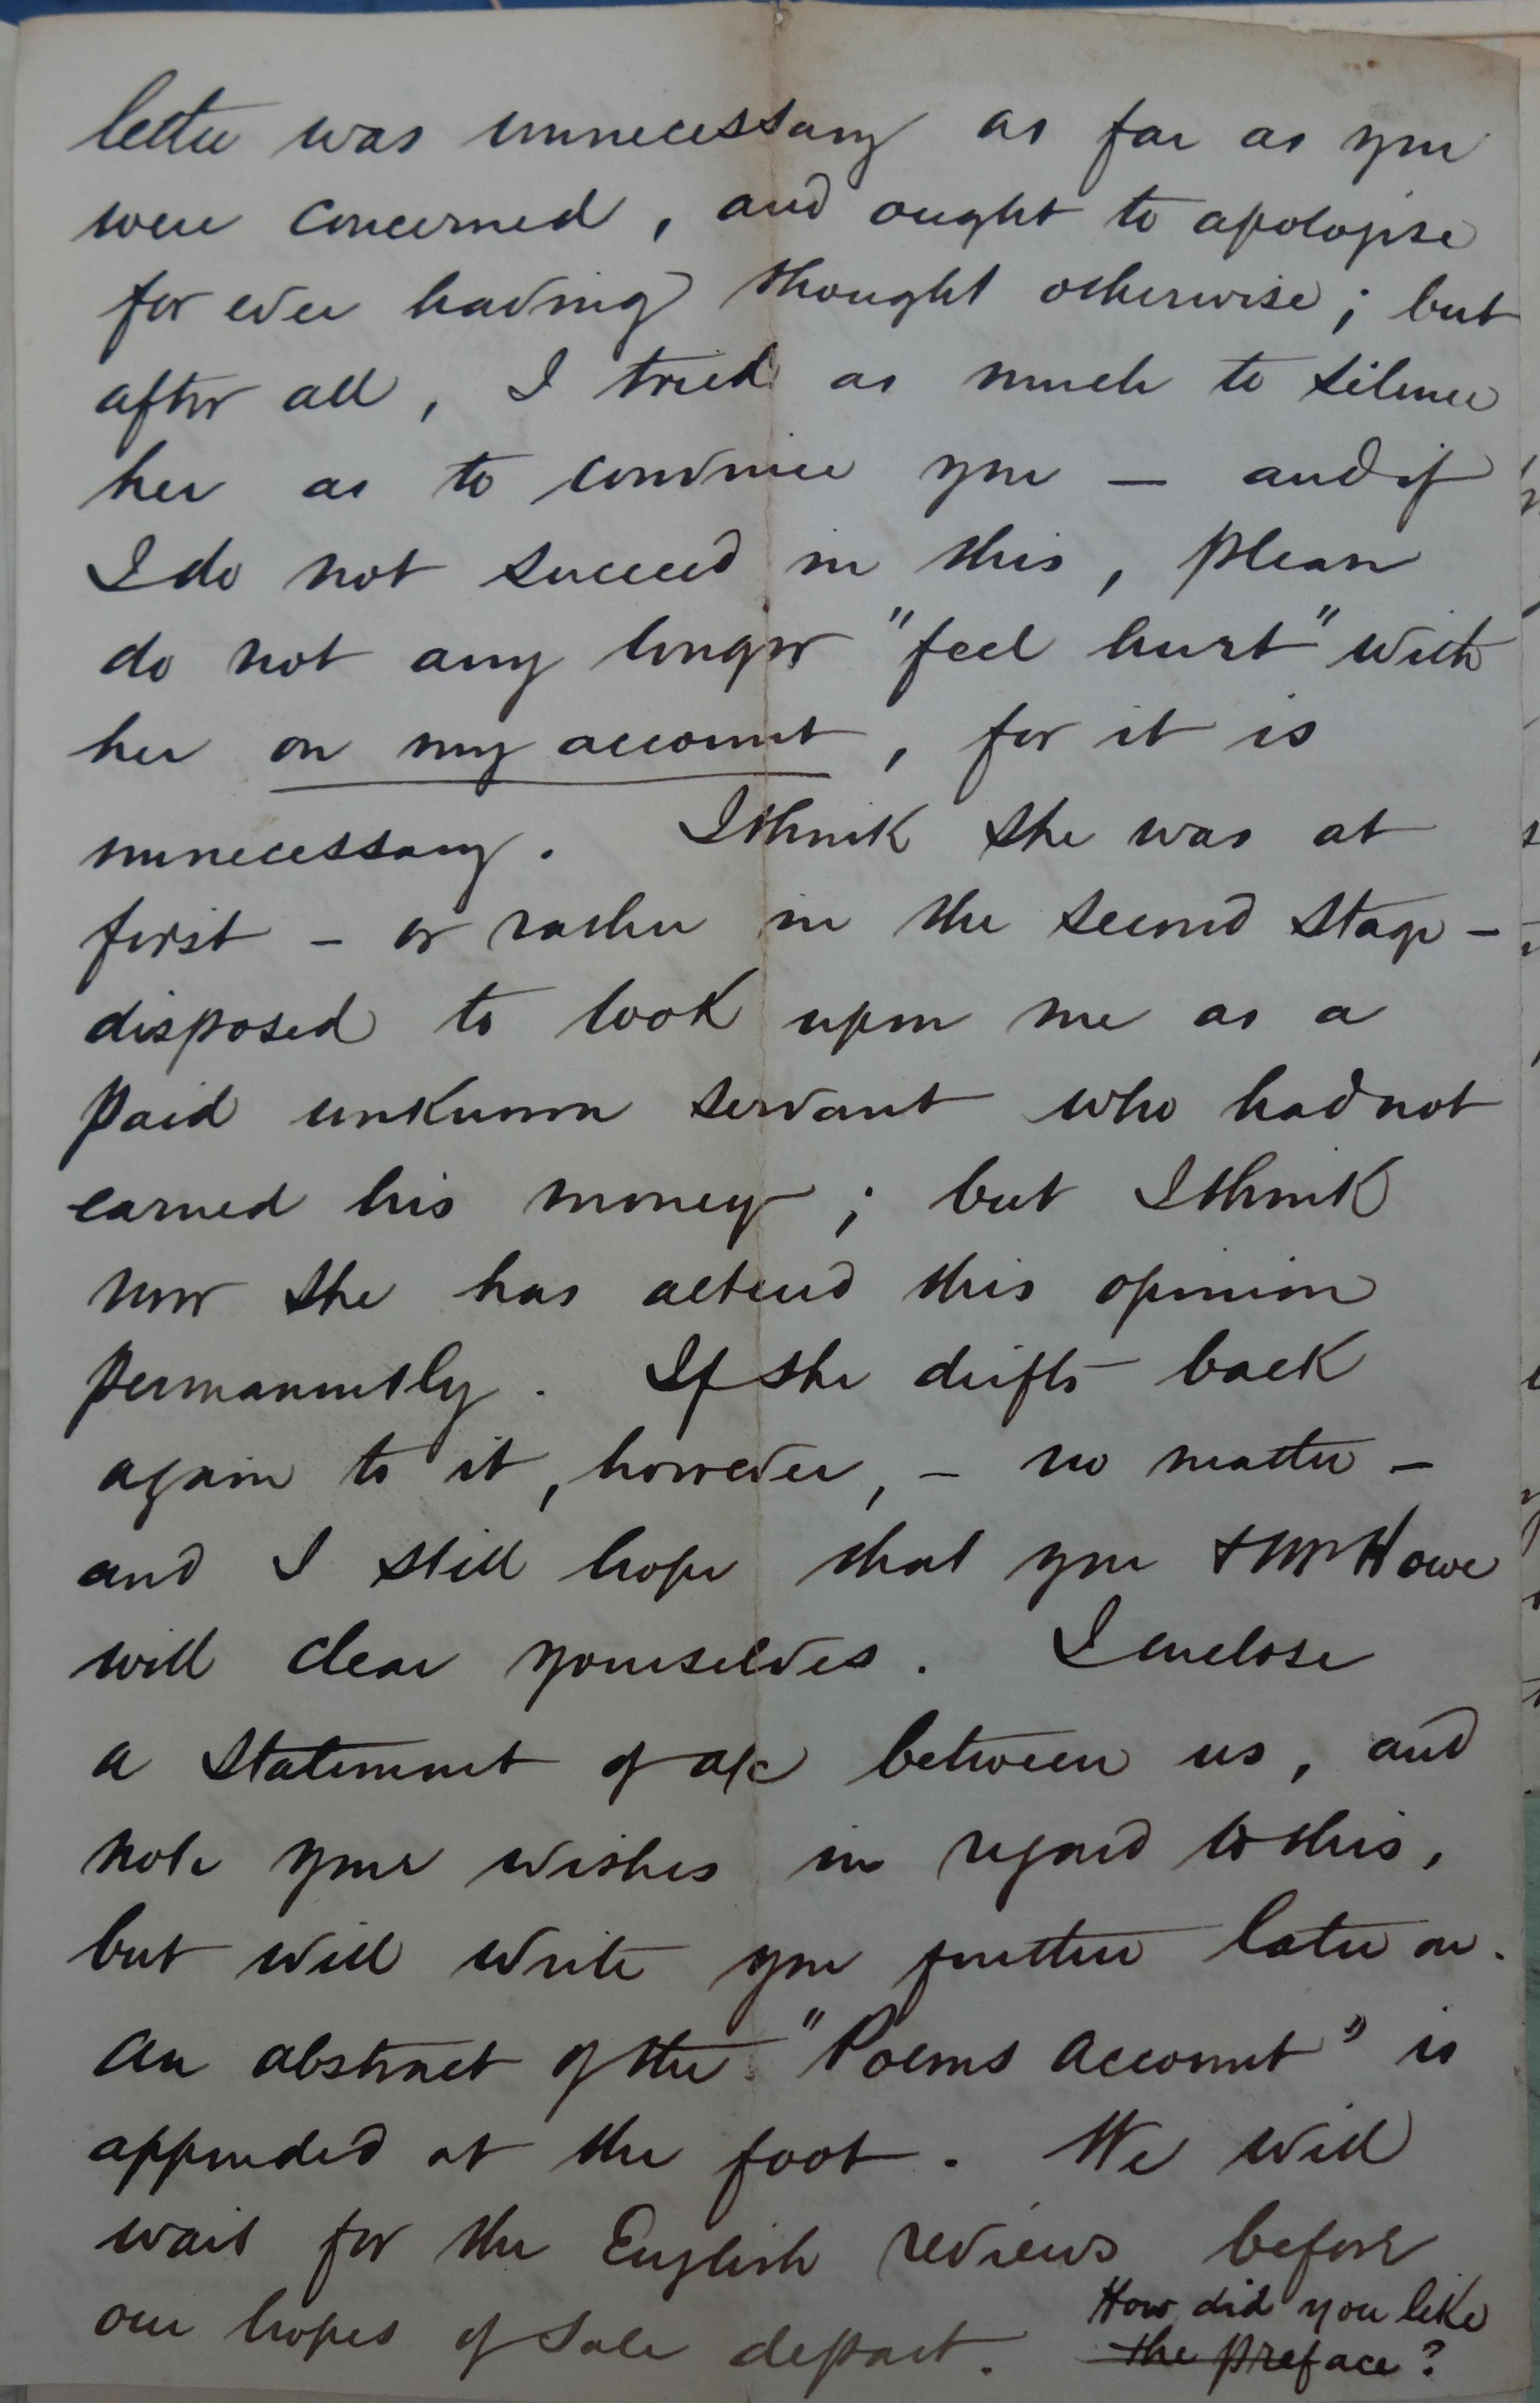 letter was unnecessary as far as you
were concerned, and ought to apologise
for ever having thought otherwise; but
after all, I tried as much to silence
her as to convince you — and if
I do not succeed in this, please
do not any longer "feel hurt" with
her on my account, for it is
unnecessary. I think she was at
first – or rather in the second stage –
disposed to look upon me as a
paid unknown servant who had not
earned his money; but I think
now she has altered this opinion
permanently. If she drifts back
again to it, however, – no matter –
and I still hope that you & Mr Howe
will clear yourselves. I enclose
a statement of a/c between us, and
note your wishes in regard to this,
but will write you further later on.
An abstract of the "Poems Account" is
appended at the foot. We will
wait for the English reviews before
our hopes of sale depart. How did you like
the preface?